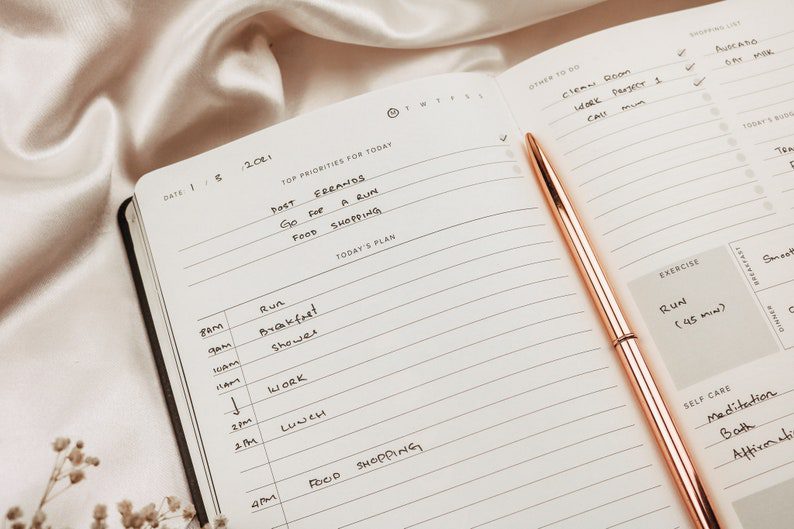 M T W T F S S
DATE: 1 / 3 / 2021
TOP PRIORITIES FOR TODAY
POST ERRANDS
GO FOR A RUN
FOOD SHOPPING
TODAY'S PLAN
8AM RUN
9AM Breakfast
10AM Shower
11AM WORK
2PM
2PM LUNCH
4PM FOOD SHOPPING
OTHER TO DO
CLEAN ROOM
WORK PROJECT 1
CALL MUM
SHOPPING LIST
AVOCADO
OAT MILK
TODAY'S BUDG
TRA
EXERCISE
RUN
(45 MIN)
BREAKFAST
Smooth
DINNER
SELF CARE
Meditation
Bath
Affirmati